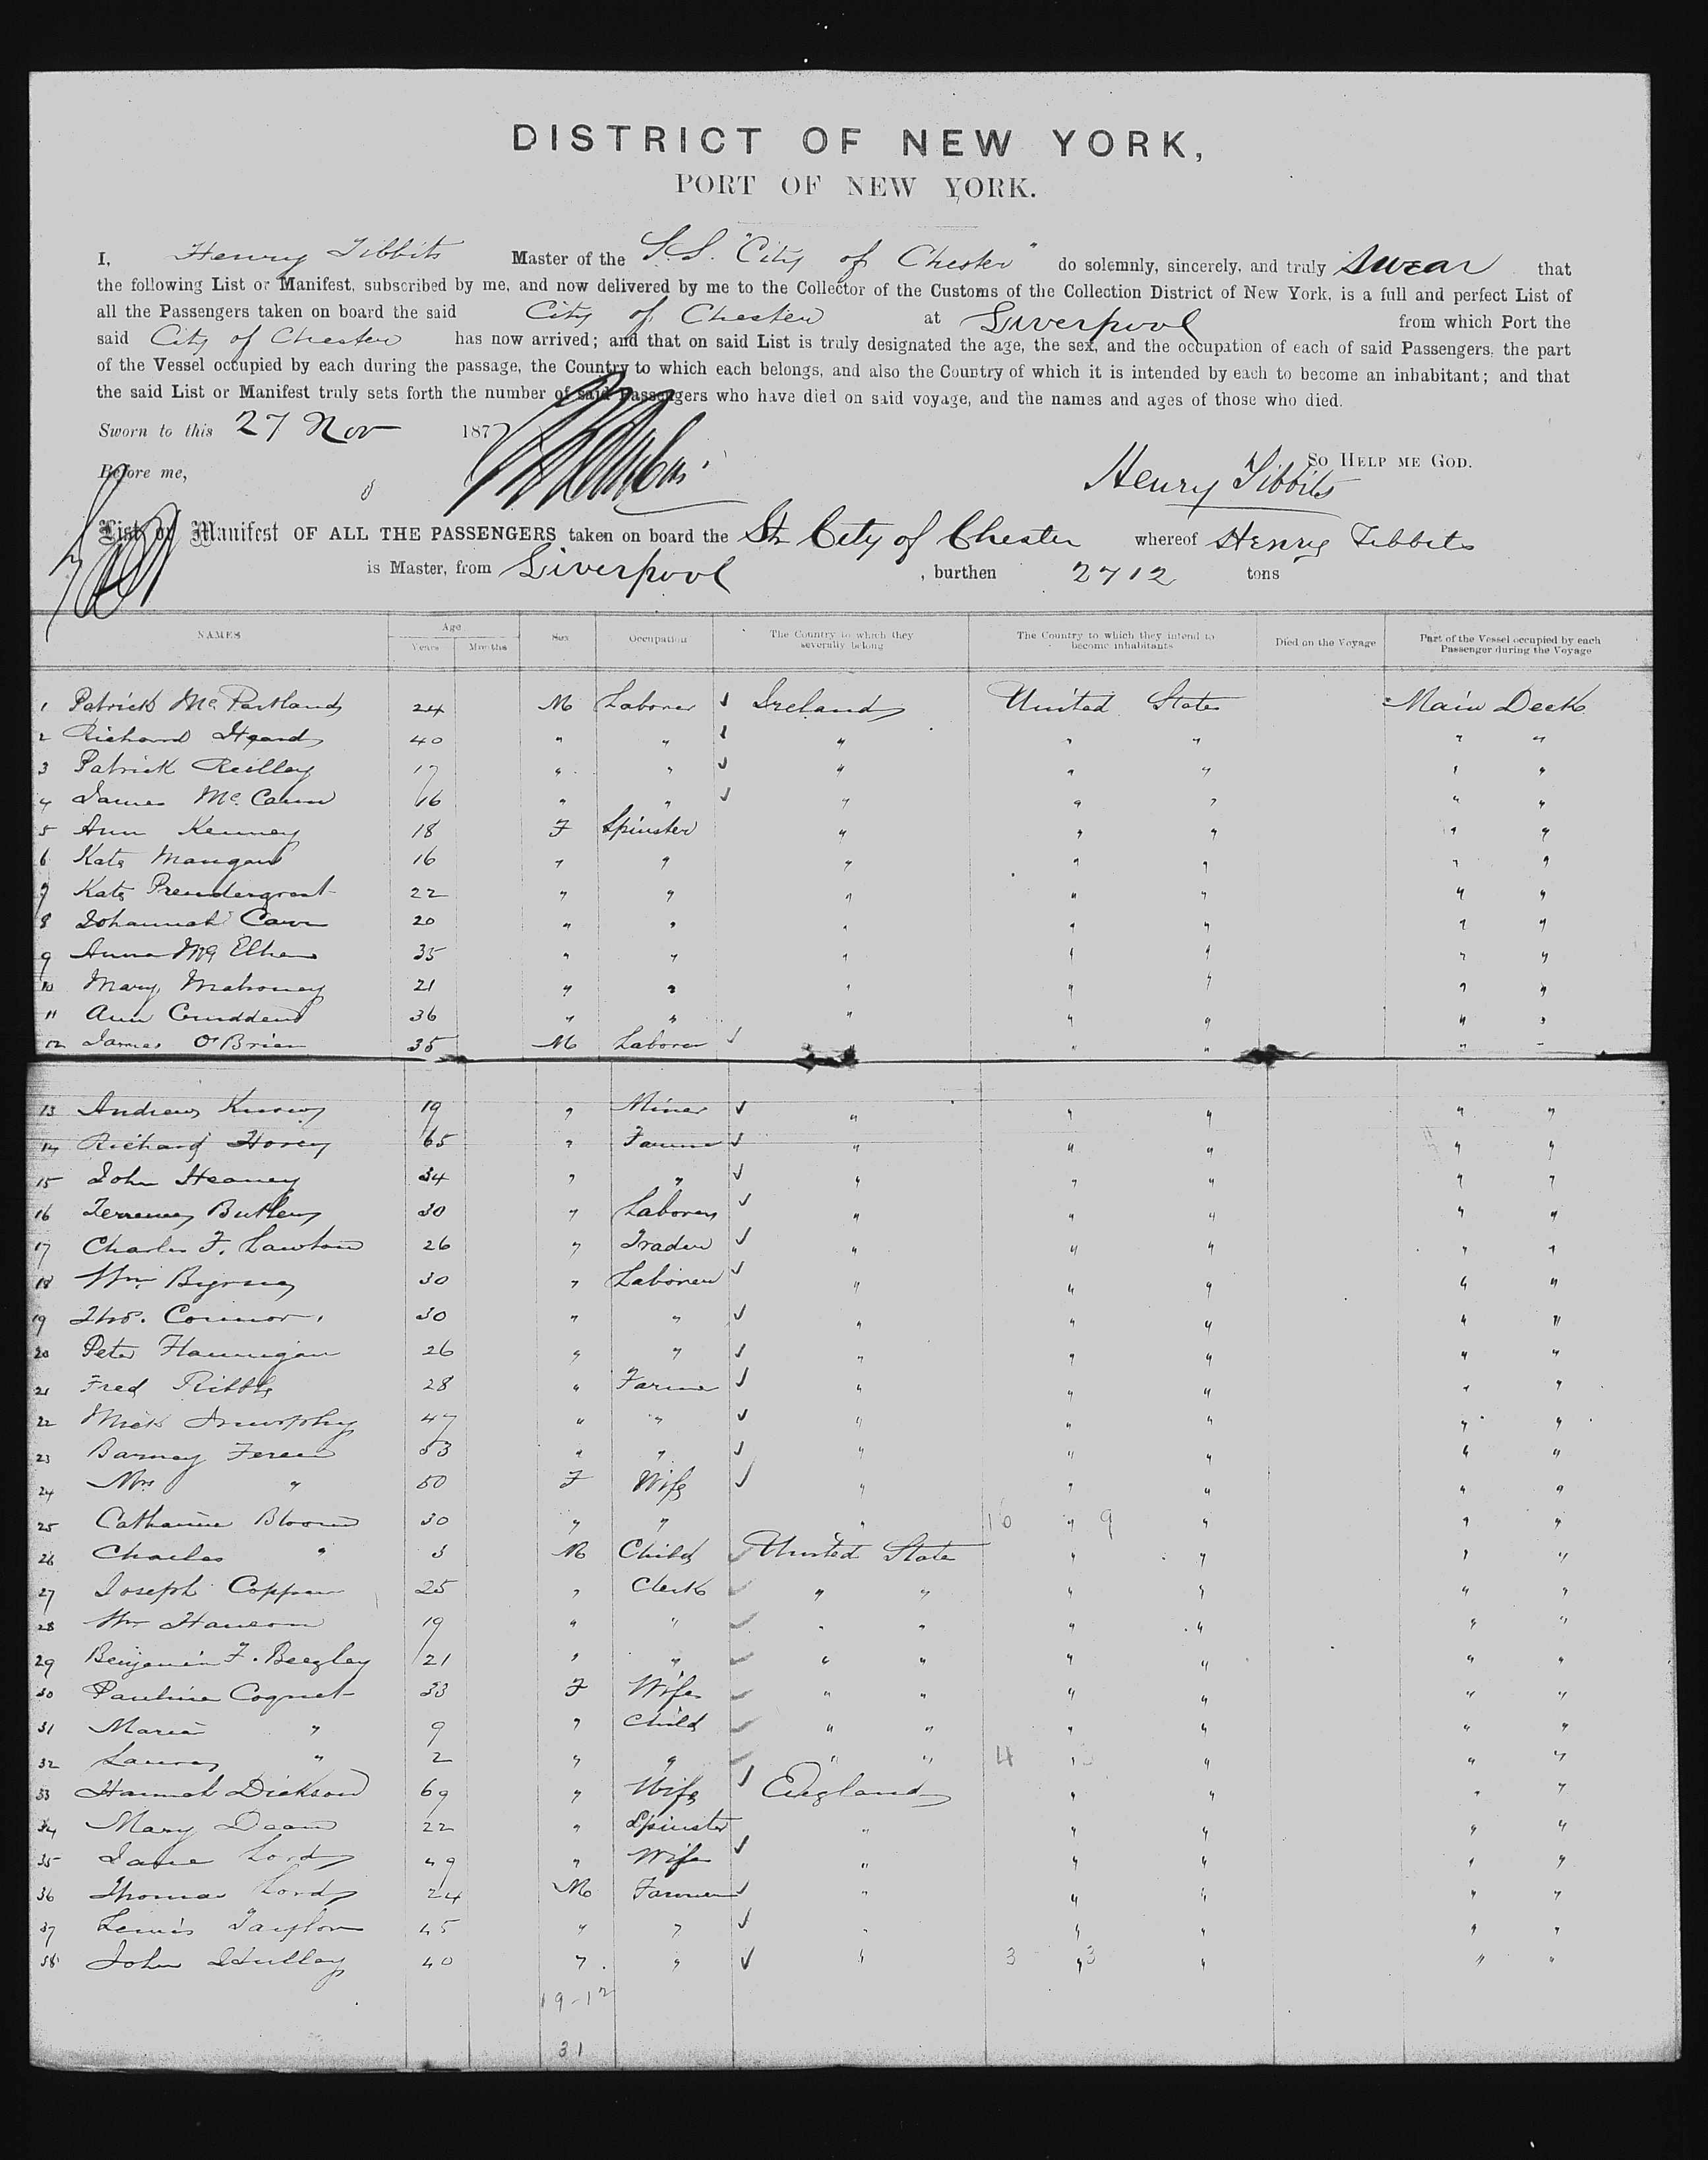 DISTRICT OF NEW YORK,
PORT OF NEW YORK.
I, Henry Tibbits Master of the S.S. "City of Chester" do solemnly, sincerely, and truly Swear that
the following List or Manifest, subscribed by me, and now delivered by me to the Collector of the Customs of the Collection District of New York, is a full and perfect List of
all the Passengers taken on board the said City of Chester at Liverpool from which Port the
said City of Chester has now arrived; and that on said List is truly designated the age, the sex, and the occupation of each of said Passengers, the part
of the Vessel occupied by each during the passage, the Country to which each belongs, and also the Country of which it is intended by each to become an inhabitant; and that
the said List or Manifest truly sets forth the number of said Passengers who have died on said voyage, and the names and ages of those who died.
Sworn to this 27 Nov 1877
So Help me God.
Before me,
Henry Tibbits
List or Manifest OF ALL THE PASSENGERS taken on board the Str City of Chester whereof Henry Tibbits
is Master, from Liverpool , burthen 2712 tons
NAMES Age Years Months Sex Occupation The Country to which they severally belong The Country to which they intend to become inhabitants Died on the Voyage Part of the Vessel occupied by each Passenger during the Voyage
1 Patrick McPartland 24 M Laborer Ireland United States Main Deck
2 Richard 40 " " " " " " "
3 Patrick Reilley 17 " " " " " " "
4 James McCann 16 " " " " " " "
5 Ann Kenney 18 F Spinster " " " " "
6 Kate Mangan 16 " " " " " " "
7 Kate Prendergrast 22 " " " " " " "
8 Johannah 20 " " " " " " "
9 Anna 35 " " " " " " "
10 Mary Mahoney 21 " " " " " " "
11 Ann 36 " " " " " " "
12 James O'Brien 35 M Laborer " " " " "
13 Andrew 19 " Miner " " " " "
14 Richard 65 " Farmer " " " " "
15 John Heaney 34 " " " " " " "
16 Butler 30 " Laborer " " " " "
17 Charles F. Lawton 26 " Trader " " " " "
18 Wm Byrne 30 " Laborer " " " " "
19 Thos. Connor 30 " " " " " " "
20 Peter Flannigan 26 " " " " " " "
21 Fred 28 " Farmer " " " " "
22 Mick 47 " " " " " " "
23 Barney 53 " " " " " " "
24 Mrs " 50 F Wife " " " " "
25 Catharine Bloom 30 " " " 16 " 9 " " "
26 Charles " 3 M Child United State " " " "
27 Joseph 25 " Clerk " " " " " "
28 Wm Hanson 19 " " " " " " " "
29 Benjamin F. Beegley 21 " " " " " " " "
30 Pauline Coquet 33 F Wife " " " " " "
31 Maria " 9 " Child " " " " " "
32 Laura " 2 " " " " 4 " " " "
33 Hannah Dickson 69 " Wife England " " " "
34 Mary Dean 22 " Spinster " " " " "
35 Jane Lord 49 " Wife " " " " "
36 Thomas Lord 24 M Farmer " " " " "
37 Lewis Taylor 45 " " " " " " "
38 John 40 " " " 3 " 3 " " "
19-12
31